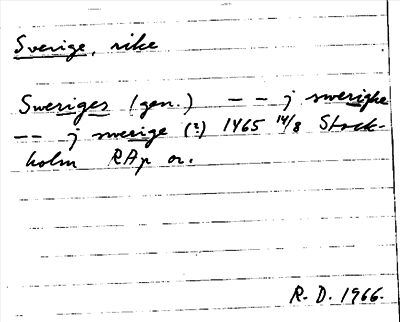 Sverige, rike
Sweriges (gen.) -- j swerighe
-- j swerige (?) 1465 14/8 Stock-
holm RAp or.
R. D. 1966.